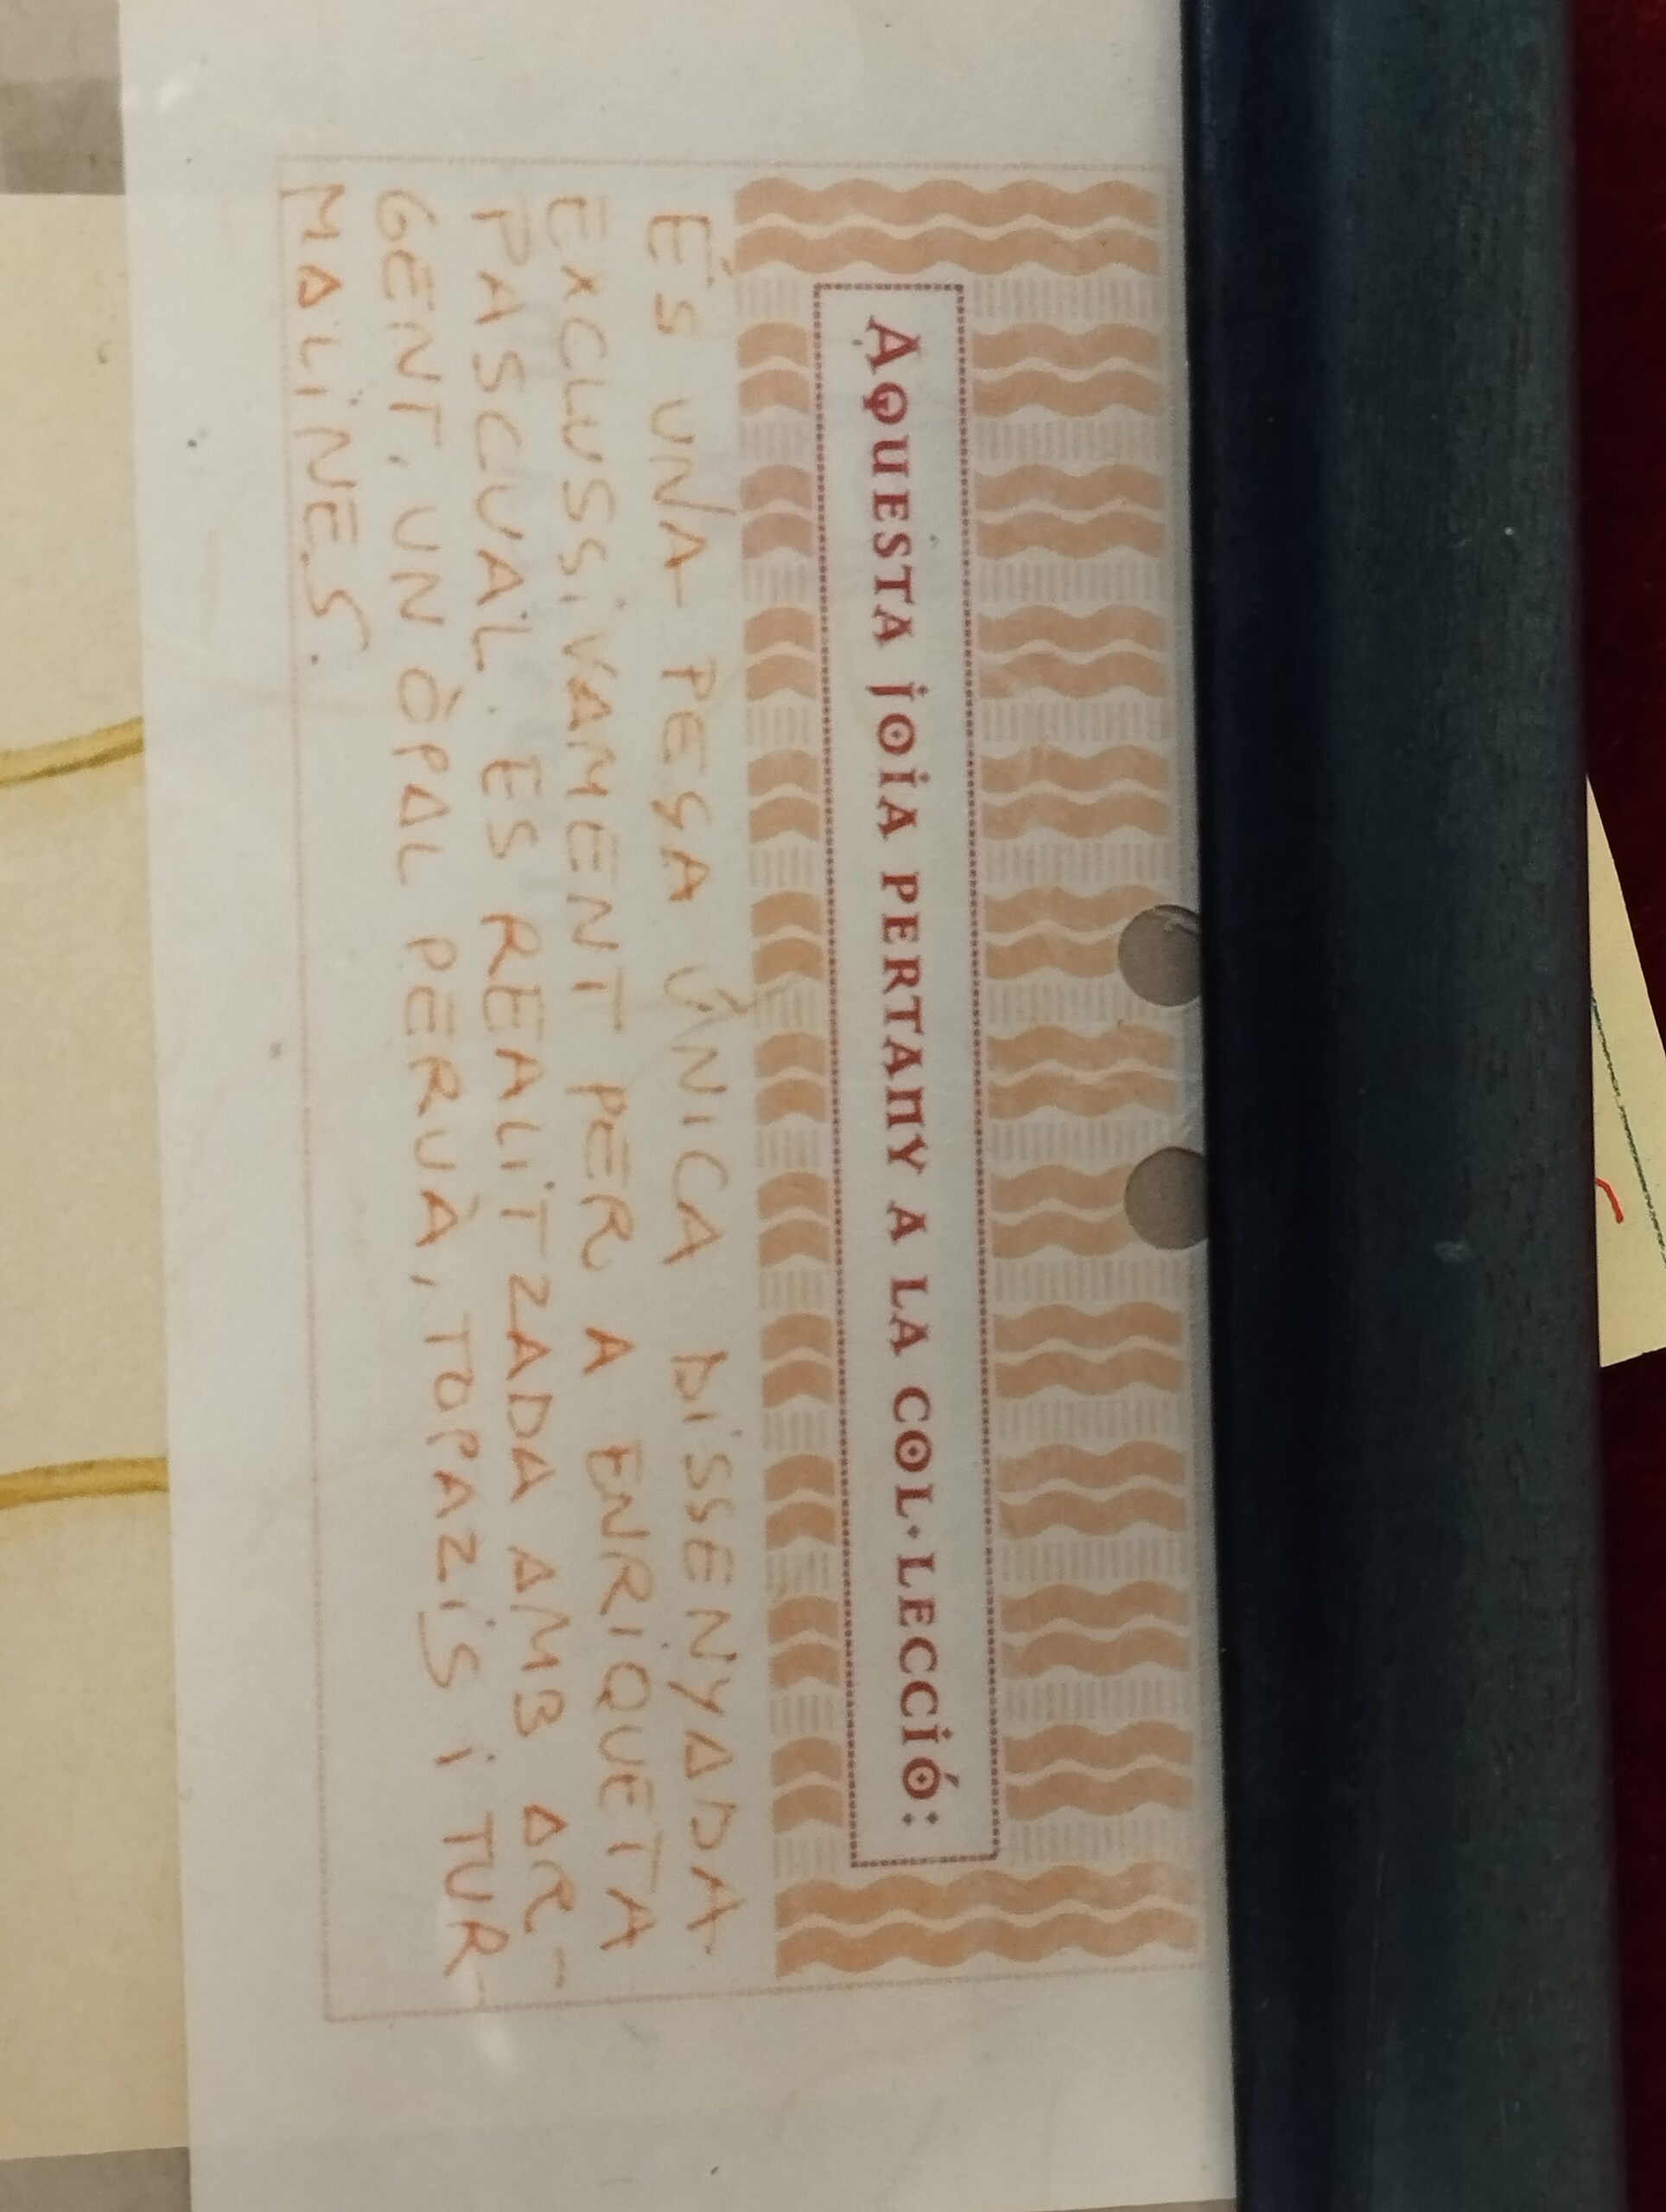 AQUESTA JOIA PERTANY A LA COL·LECCIÓ:
ÉS UNA PESA ÚNICA DISSENYADA
EXCLUSSIVAMENT PER A ENRIQUETA
PASCUAL. ES REALITZADA AMB AR-
GENT, UN ÒPAL PERUÀ, TOPAZIS I TUR-
MALINES.